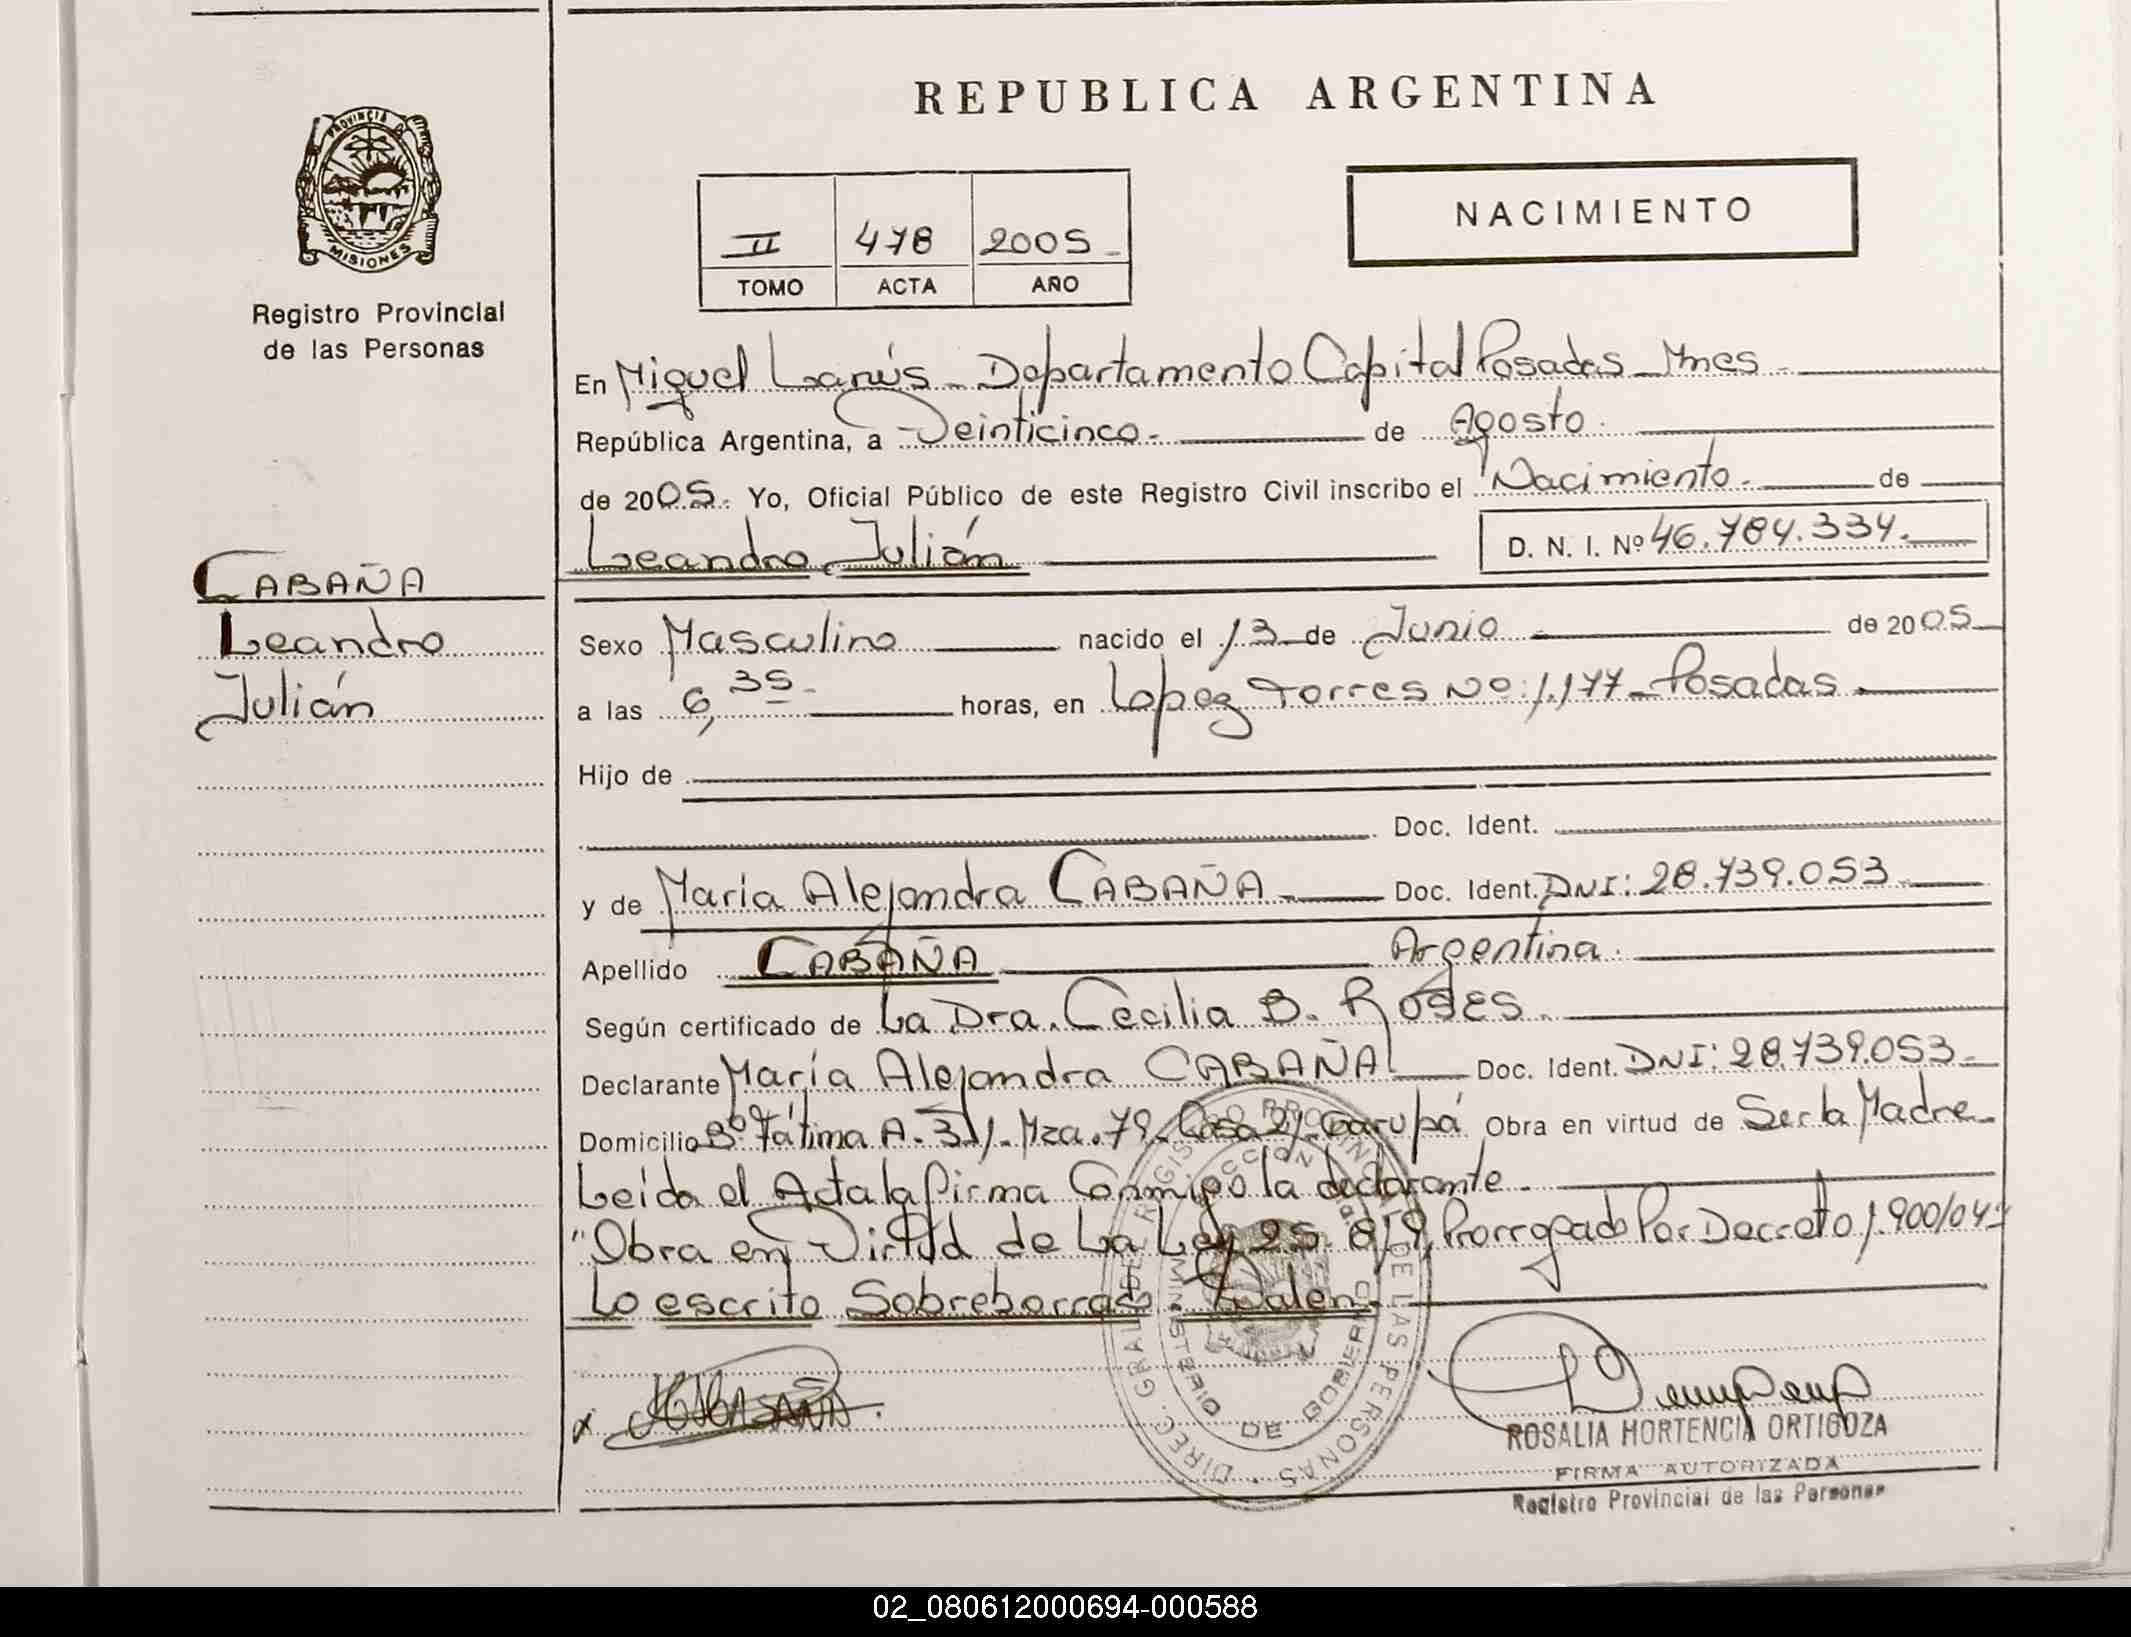 REPUBLICA ARGENTINA
PROVINCIA DE
MISIONES
Registro Provincial
de las Personas
II 478 2005
TOMO ACTA AÑO
NACIMIENTO
En Miguel Lanús - Departamento Capital Posadas - Mnes -
República Argentina, a Veinticinco - de Agosto.
de 2005. Yo, Oficial Público de este Registro Civil inscribo el Nacimiento - de
Leandro Julián
D. N. I. Nº 46.784.334.
CABAÑA
Leandro
Julián
Sexo Masculino nacido el 13 de Junio de 2005
a las 6,35 horas, en Lopez Torres Nº: 1.177 - Posadas
Hijo de
Doc. Ident.
y de María Alejandra CABAÑA Doc. Ident. DNI: 28.739.053
Apellido CABAÑA Argentina.
Según certificado de La Dra. Cecilia B. Roses
Declarante María Alejandra CABAÑA Doc. Ident. DNI: 28.739.053
Domicilio Bº Fátima A. 31/. Mza. 79 - Casa 21. Garupá Obra en virtud de Ser la Madre
Leída el Acta la firma Conmigo la declarante.
"Obra en Virtud de La Ley 25.819, Prorrogado Por Decreto 1.900/04"
Lo escrito Sobreborrado Valen.
DIREC. GRAL. DE REGISTRO PROVINCIAL DE LAS PERSONAS
MINISTERIO DE GOBIERNO
x CABAÑA
ROSALIA HORTENCIA ORTIGOZA
FIRMA AUTORIZADA
Registro Provincial de las Personas
02_080612000694-000588